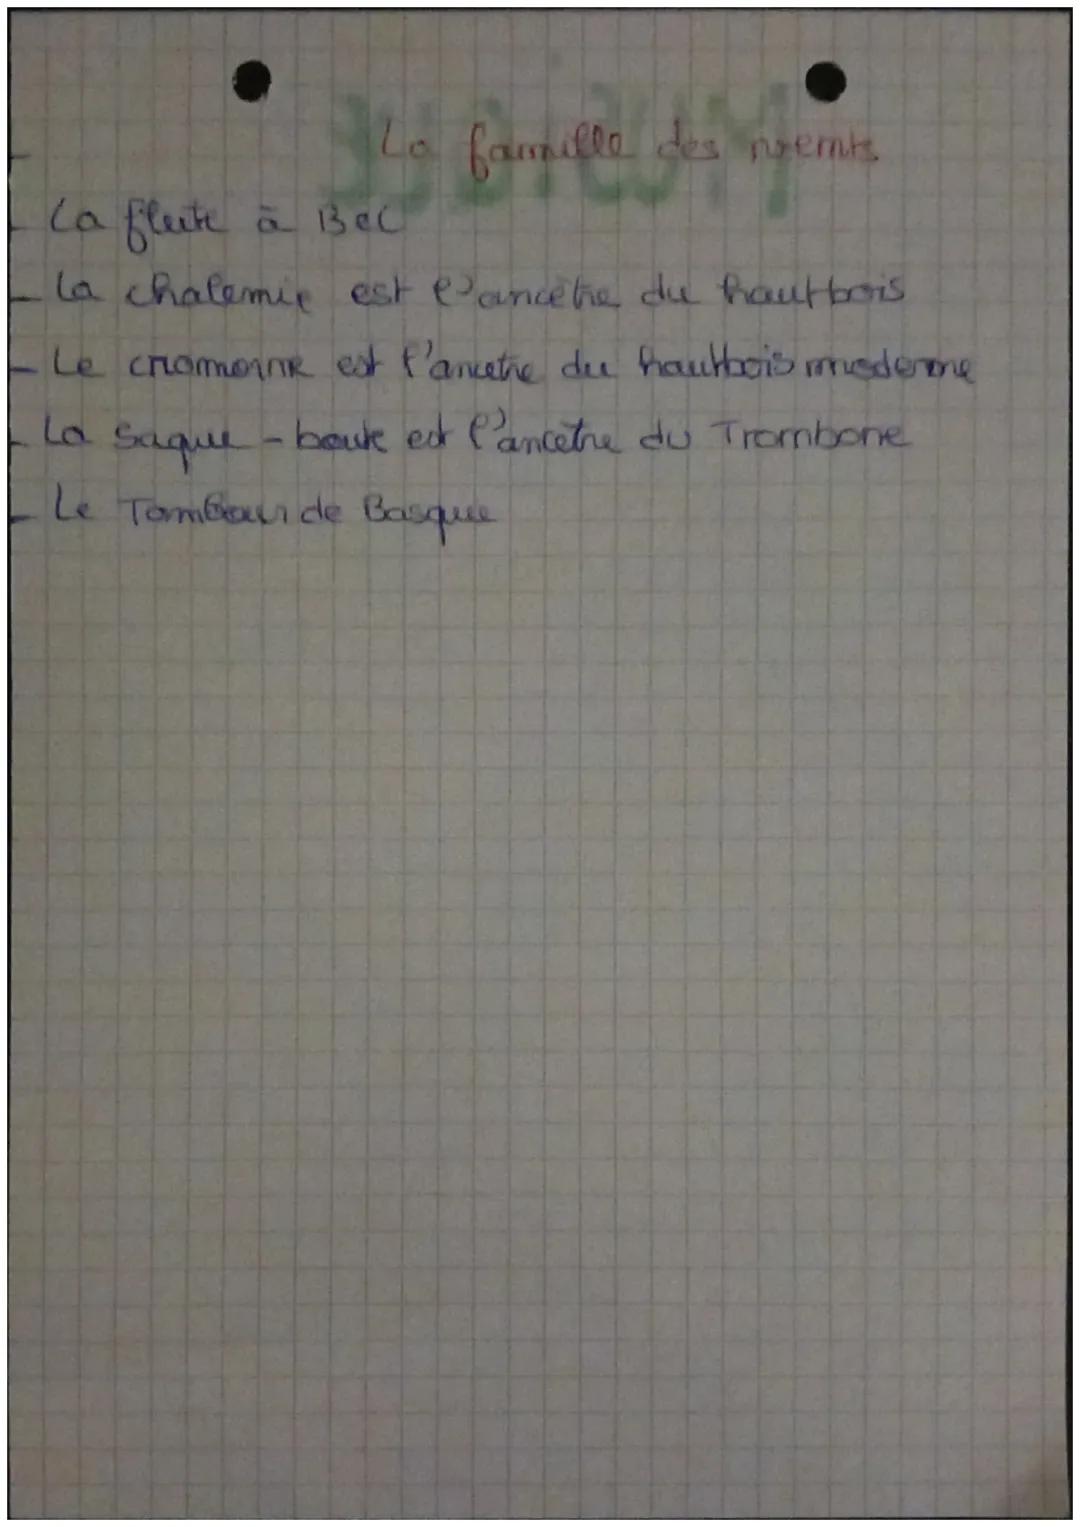 La famille des vents
- La flute à Bec
- La chalemie est l'ancêtre du hautbois
- Le cromorne est l'ancetre du hautbois moderne
- La saque-boute est l'ancêtre du Trombone
- Le Tambour de Basque